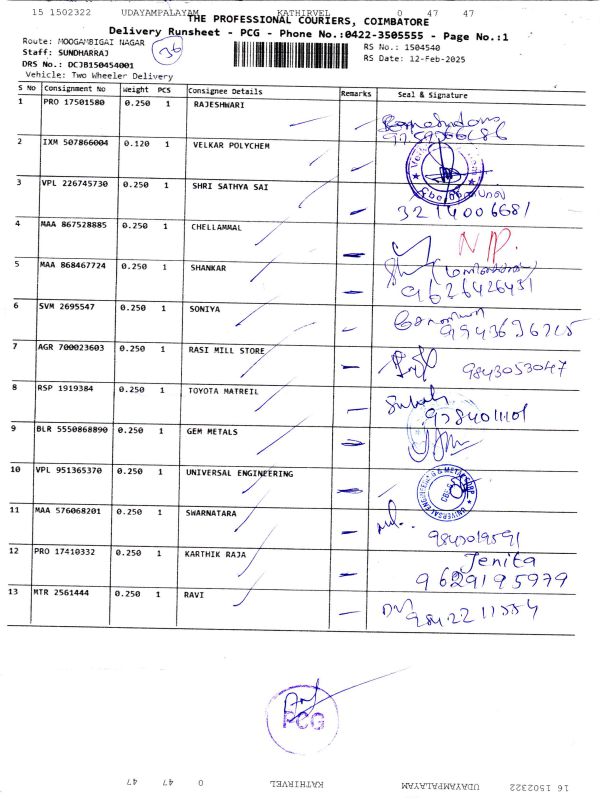 15 1502322 UDAYAMPALAYAM KATHIRVEL 0 47 47
THE PROFESSIONAL COURIERS, COIMBATORE
Delivery Runsheet - PCG - Phone No.:0422-3505555 - Page No.:1
Route: MOOGAMBIGAI NAGAR
36
RS No.: 1504540
Staff: SUNDHARRAJ
RS Date: 12-Feb-2025
DRS No.: DCJB150454001
Vehicle: Two Wheeler Delivery
S No Consignment No Weight PCS Consignee Details Remarks Seal & Signature
1 PRO 17501580 0.250 1 RAJESHWARI
2 IXM 507866004 0.120 1 VELKAR POLYCHEM
3 VPL 226745730 0.250 1 SHRI SATHYA SAI
3214006681
4 MAA 867528885 0.250 1 CHELLAMMAL
N/P.
5 MAA 868467724 0.250 1 SHANKAR
9626426431
6 SVM 2695547 0.250 1 SONIYA
7 AGR 700023603 0.250 1 RASI MILL STORE
9843053047
8 RSP 1919384 0.250 1 TOYOTA MATREIL
9 BLR 5550868890 0.250 1 GEM METALS
10 VPL 951365370 0.250 1 UNIVERSAL ENGINEERING
11 MAA 576068201 0.250 1 SWARNATARA
9843019591
12 PRO 17410332 0.250 1 KARTHIK RAJA
Jenita
9629195979
13 MTR 2561444 0.250 1 RAVI
PCG
16 1502322 UDAYAMPALAYAM KATHIRVEL 0 47 47